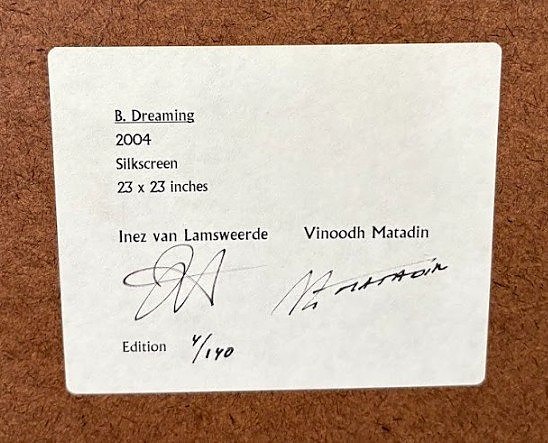 B. Dreaming
2004
Silkscreen
23 x 23 inches
Inez van Lamsweerde Vinoodh Matadin
MATADIN
Edition 4/140